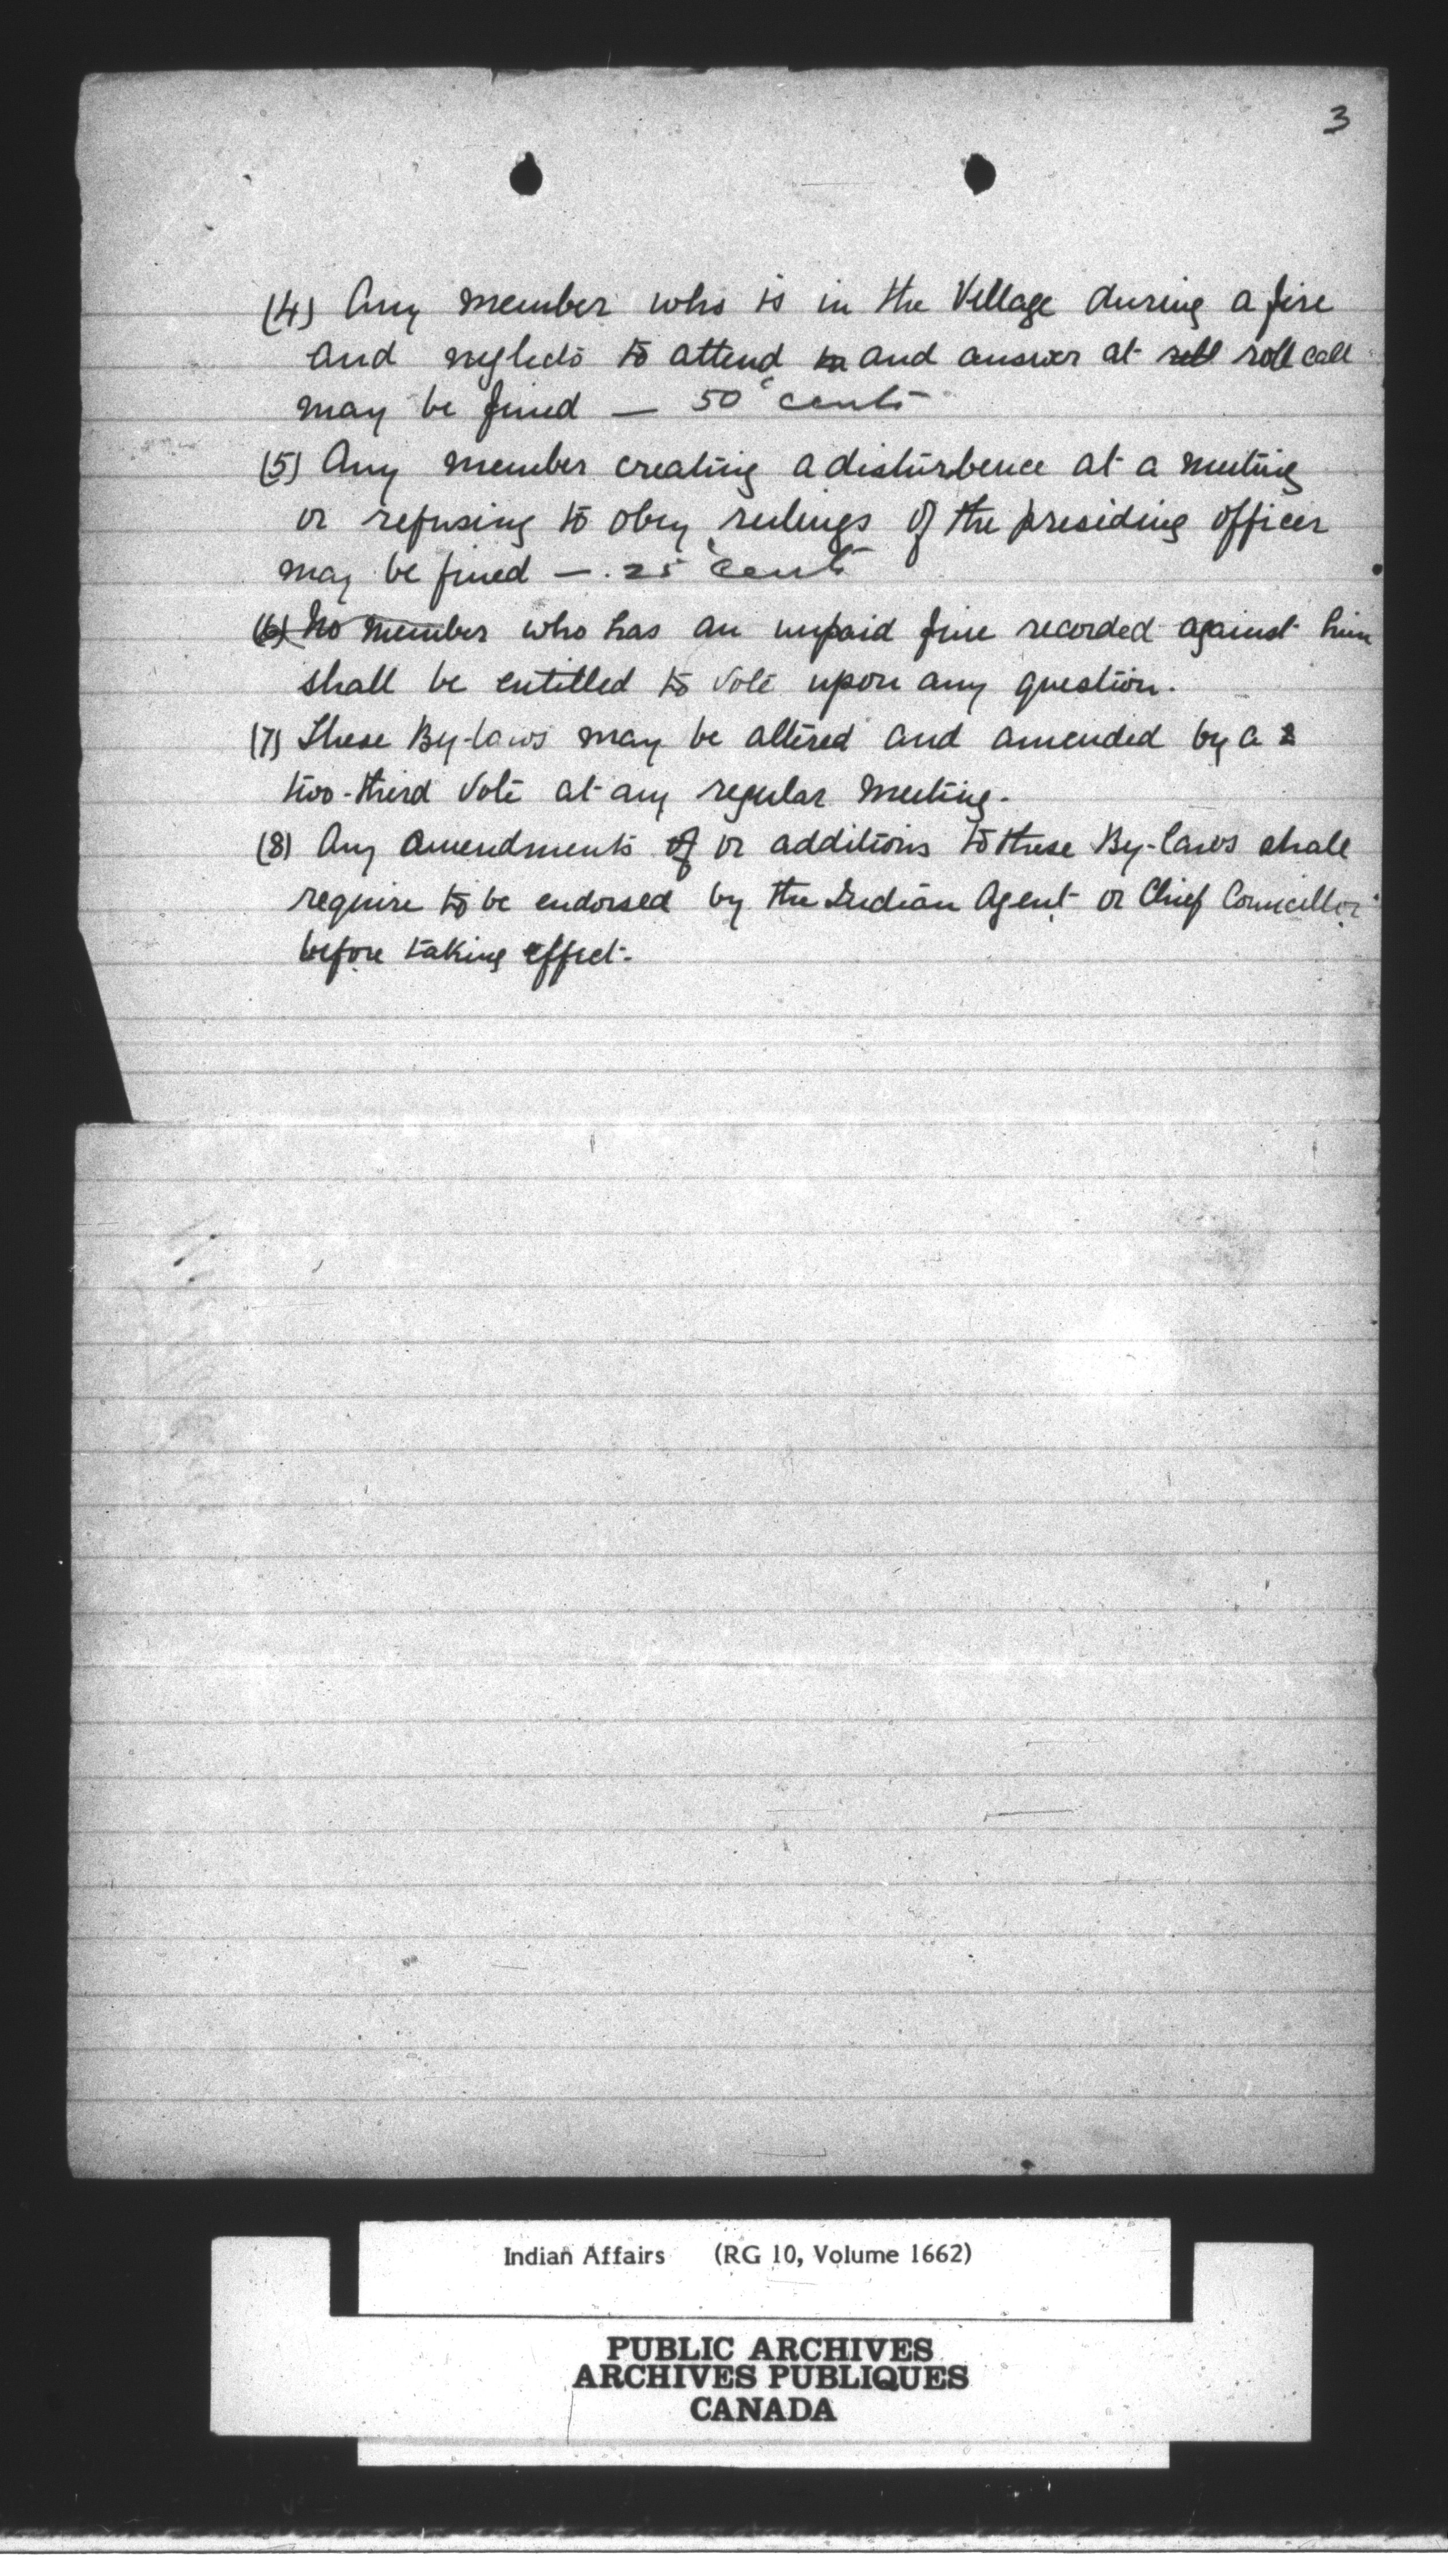 3
(4) Any member who is in the Village during a fire
and neglects to attend to and answer at roll roll call
may be fined — 50 cents
(5) Any member creating a disturbence at a meeting
or refusing to obey rulings of the presiding officer
may be fined — .25 cents
(6) No member who has an unpaid fine recorded against him
shall be entitled to vote upon any question.
(7) These By-laws may be altered and amended by a 2
two-third Vote at any regular meeting.
(8) Any amendments of or additions to these By-laws shall
require to be endorsed by the Indian Agent or Chief Councillor
before taking effect.
Indian Affairs (RG 10, Volume 1662)
PUBLIC ARCHIVES
ARCHIVES PUBLIQUES
CANADA